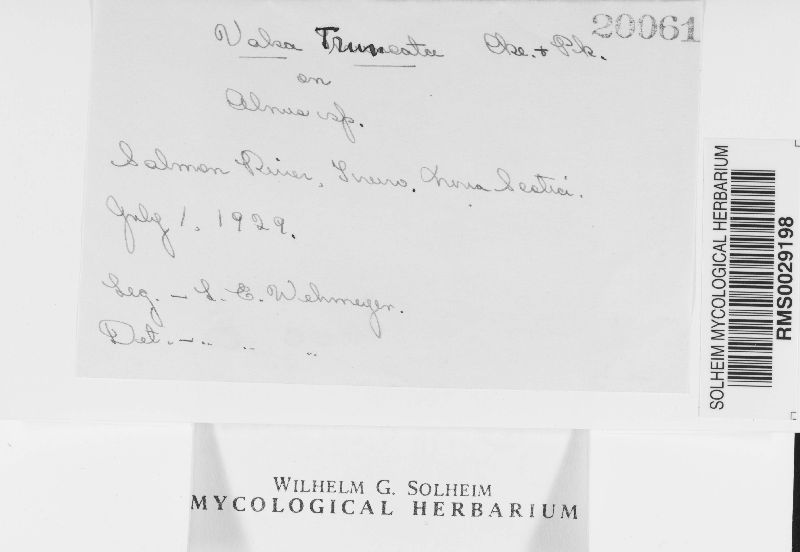 20061
Valsa Truncata Cke. + Pk.
on
Alnus sp.
Salmon River, Truro. Nova Scotia.
July 1. 1929.
Leg. - L. E. Wehmeyer.
Det. - .. .. ..
SOLHEIM MYCOLOGICAL HERBARIUM
RMS0029198
WILHELM G. SOLHEIM
MYCOLOGICAL HERBARIUM